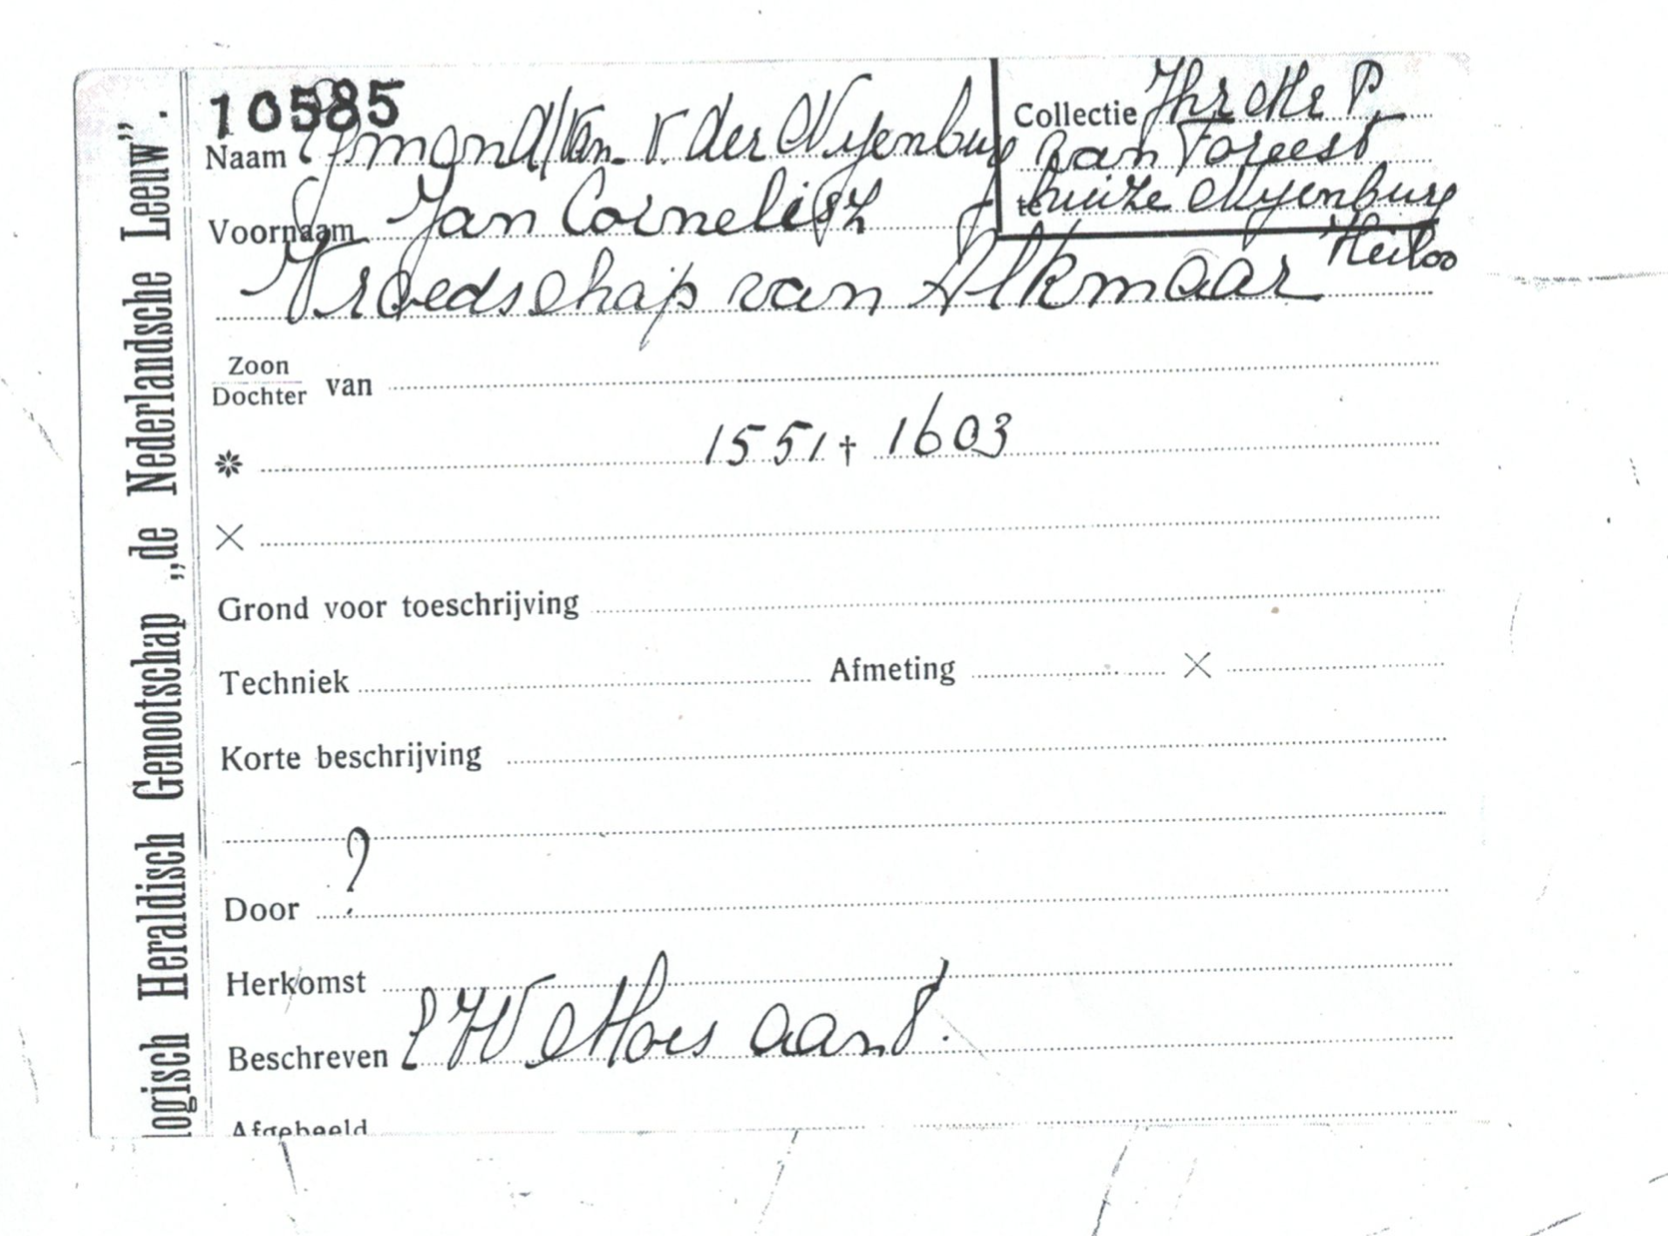 10585
Naam Egmond/van. v. der Nijenburg
Collectie Jhr Mr P.
van Foreest
te huize Nijenburg
Heiloo
Voornaam Jan Cornelisz
Vroedschap van Alkmaar
Zoon
Dochter van
* 1551 † 1603
×
Grond voor toeschrijving
Techniek Afmeting ×
Korte beschrijving
Door ?
Herkomst
Beschreven E W Moes aant.
Afgebeeld
logisch Heraldisch Genootschap „de Nederlandsche Leeuw”.